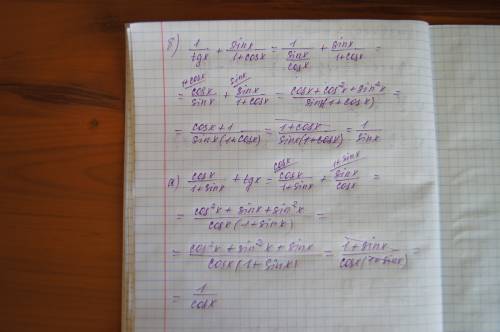 б) 1/tgx + sinx/(1+cosx) = 1/(sinx/cosx) + sinx/(1+cosx) =
= (1+cosx\ cosx/sinx + sinx\ sinx/(1+cosx) = (cosx+cos²x+sin²x)/(sinx(1+cosx)) =
= (cosx+1)/(sinx(1+cosx)) = (1+cosx)/(sinx(1+cosx)) = 1/sinx
а) cosx/(1+sinx) + tgx = cosx\ cosx/(1+sinx) + 1+sinx\ sinx/cosx =
= (cos²x + sinx + sin²x)/(cosx(1+sinx)) =
= (cos²x + sin²x + sinx)/(cosx(1+sinx)) = (1+sinx)/(cosx(1+sinx)) =
= 1/cosx